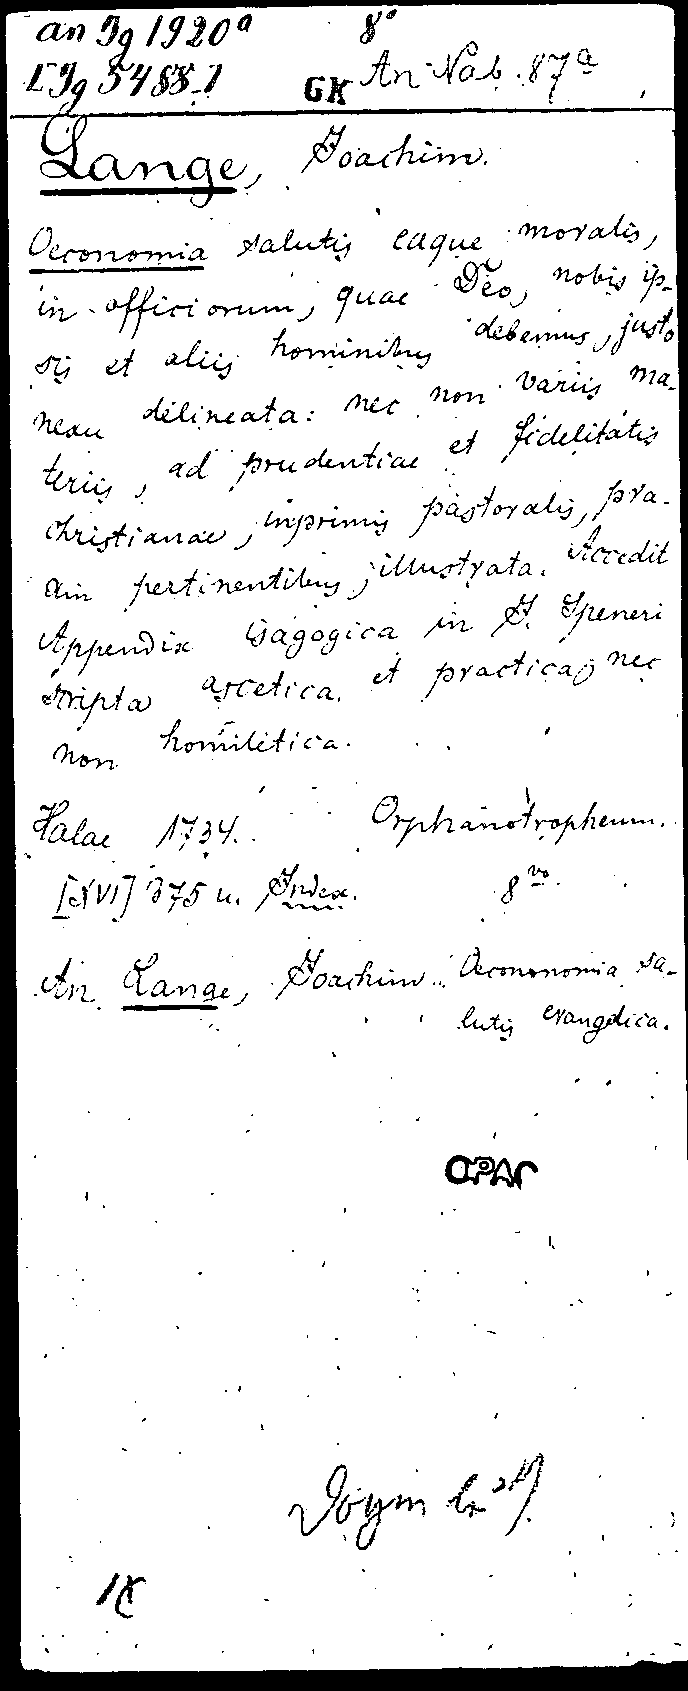 an Ig 1920ª 8°
I Ig 5488-1 GK An Nab. 87ª
Lange, Joachim.
Oeconomia salutis eaque moralis,
in officiorum, quae Deo, nobis ip-
sis et aliis hominibus debemus, justo
nexu delineata: nec non variis ma-
teriis, ad prudentiae et fidelitatis
christianae, inprimis pastoralis, pra-
xin pertinentibus, illustrata. Accedit
Appendix isagogica in J. Speneri
scripta ascetica et practica, nec
non homiletica.
Halae 1734. Orphanotropheum.
[XVI] 375 u. Index. 8vo.
An Lange, Joachim: Oecononomia sa-
lutis evangelica.
OPAC